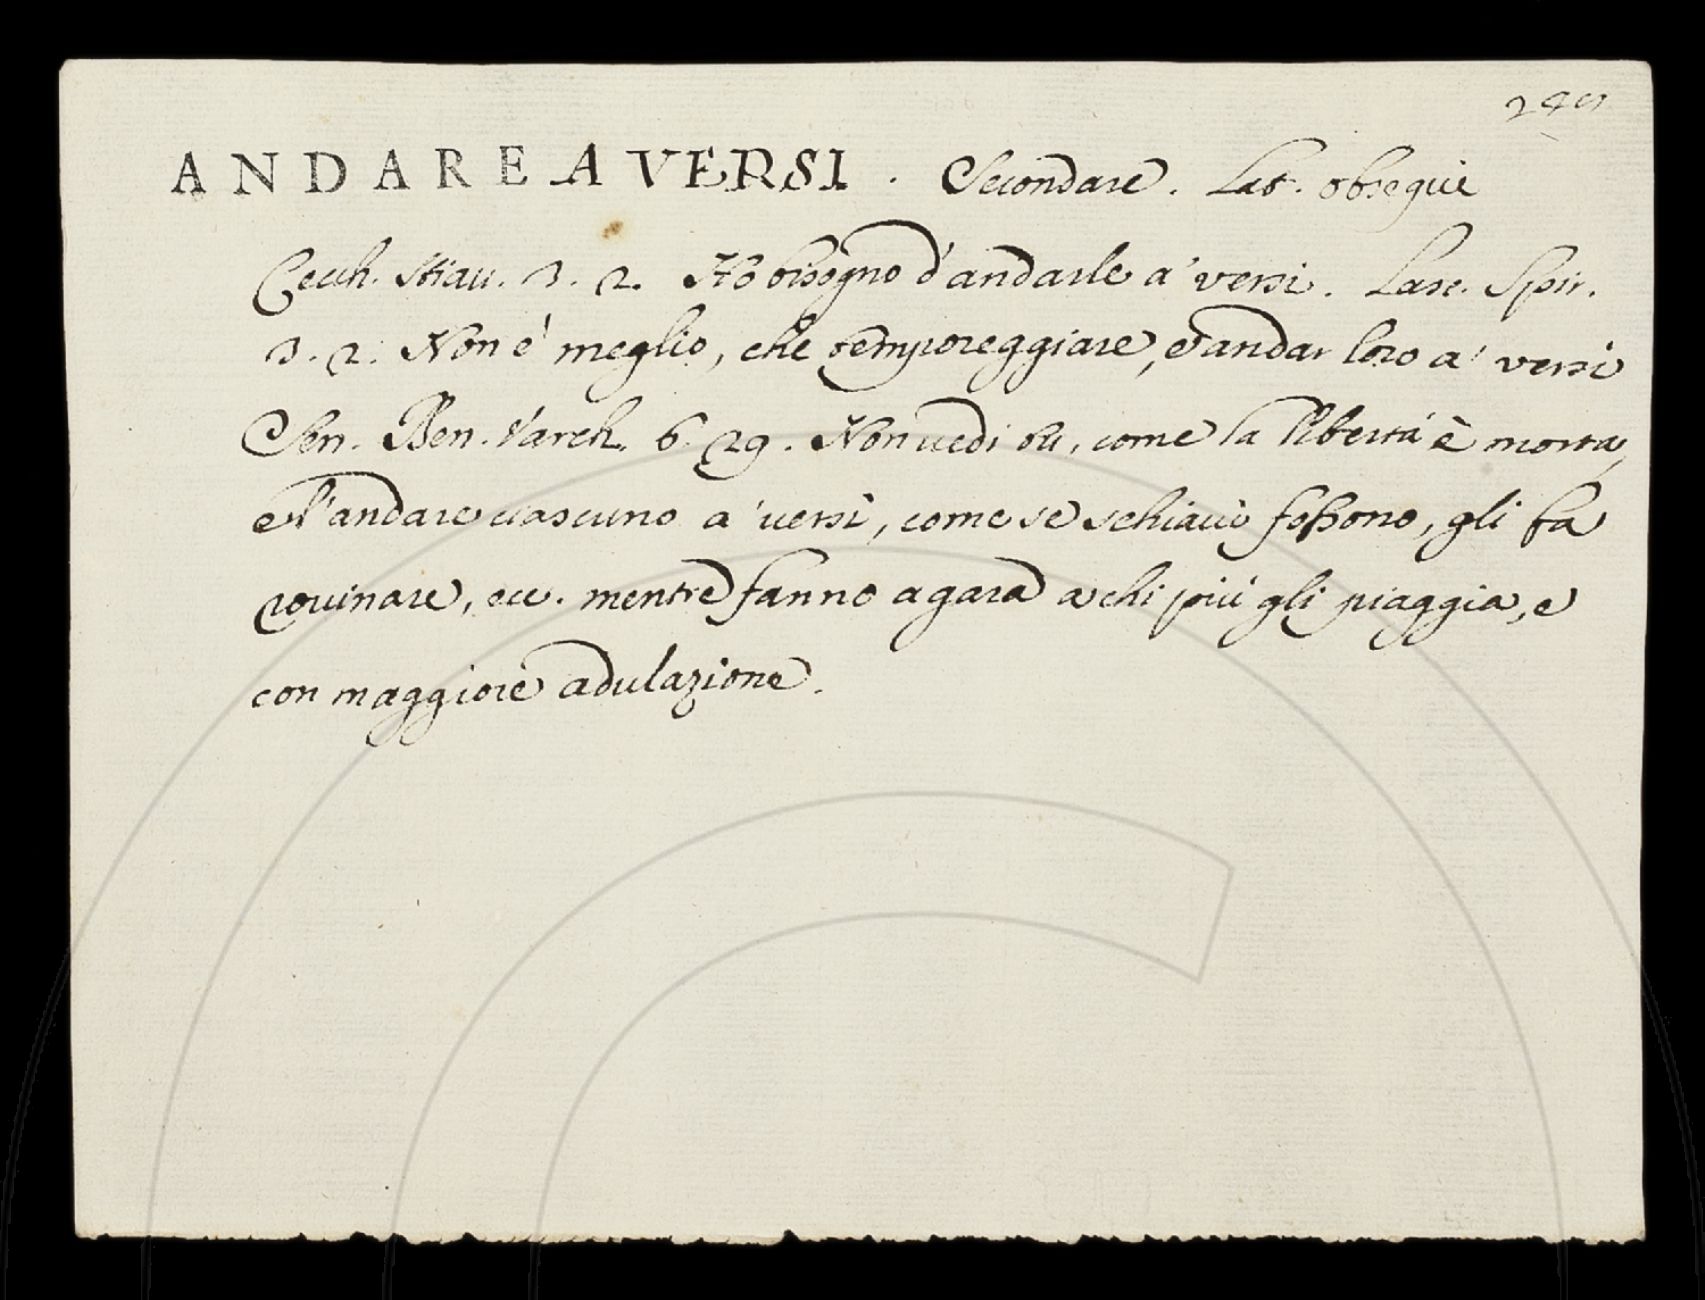 ANDARE A VERSI. Secondare. Lat. obsequi
Cecch. Stiau. 3. 2. Ho bisogno d'andarle a' versi. Lasc. Spir.
3. 2. Non è meglio, che temporeggiare, e andar loro a' versi
Sen. Ben. Varch. 6. 29. Non vedi tu, come la libertà è morta,
e l'andare ciascuno a' versi, come se schiavi fossono, gli fa
rovinare, ecc. mentre fanno a gara a chi più gli piaggia, e
con maggiore adulazione.